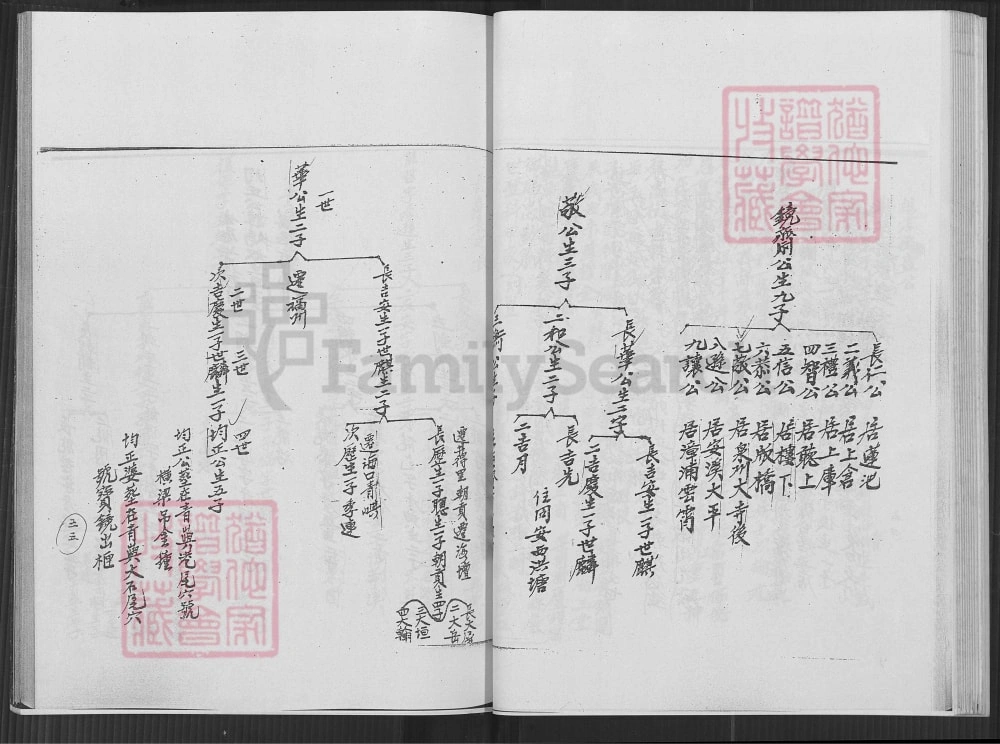 鏡齋公生九子
長仁公 居蓮汜
二義公 居上含
三禮公 居上庫
四智公 居聽上
五信公 居樓下
六恭公 居版橋
七敬公 居泉州大寺後
八遜公 居安溪大平
九讓公 居漳浦雲霄
敬公生三子
長華公生二子
長吉安生一子世麒
二吉慶生一子世麟
二和公生二子
長吉先
二吉月
住同安西洪塘
一世
華公生二子
長吉安生一子世麒生二子
長歷生一子聰生一子朝貢生四子
朝貢遷海壇
二大岳
三大垣
四大翰
次歷生一子季連
遷福州
二世 三世 四世
次吉慶生一子世麟生一子均正公生五子
均正公葬在青與
穴號
橫梁吊金鐘
均正婆葬在青與大石尾穴
號寶鏡出框
三三
FamilySearch